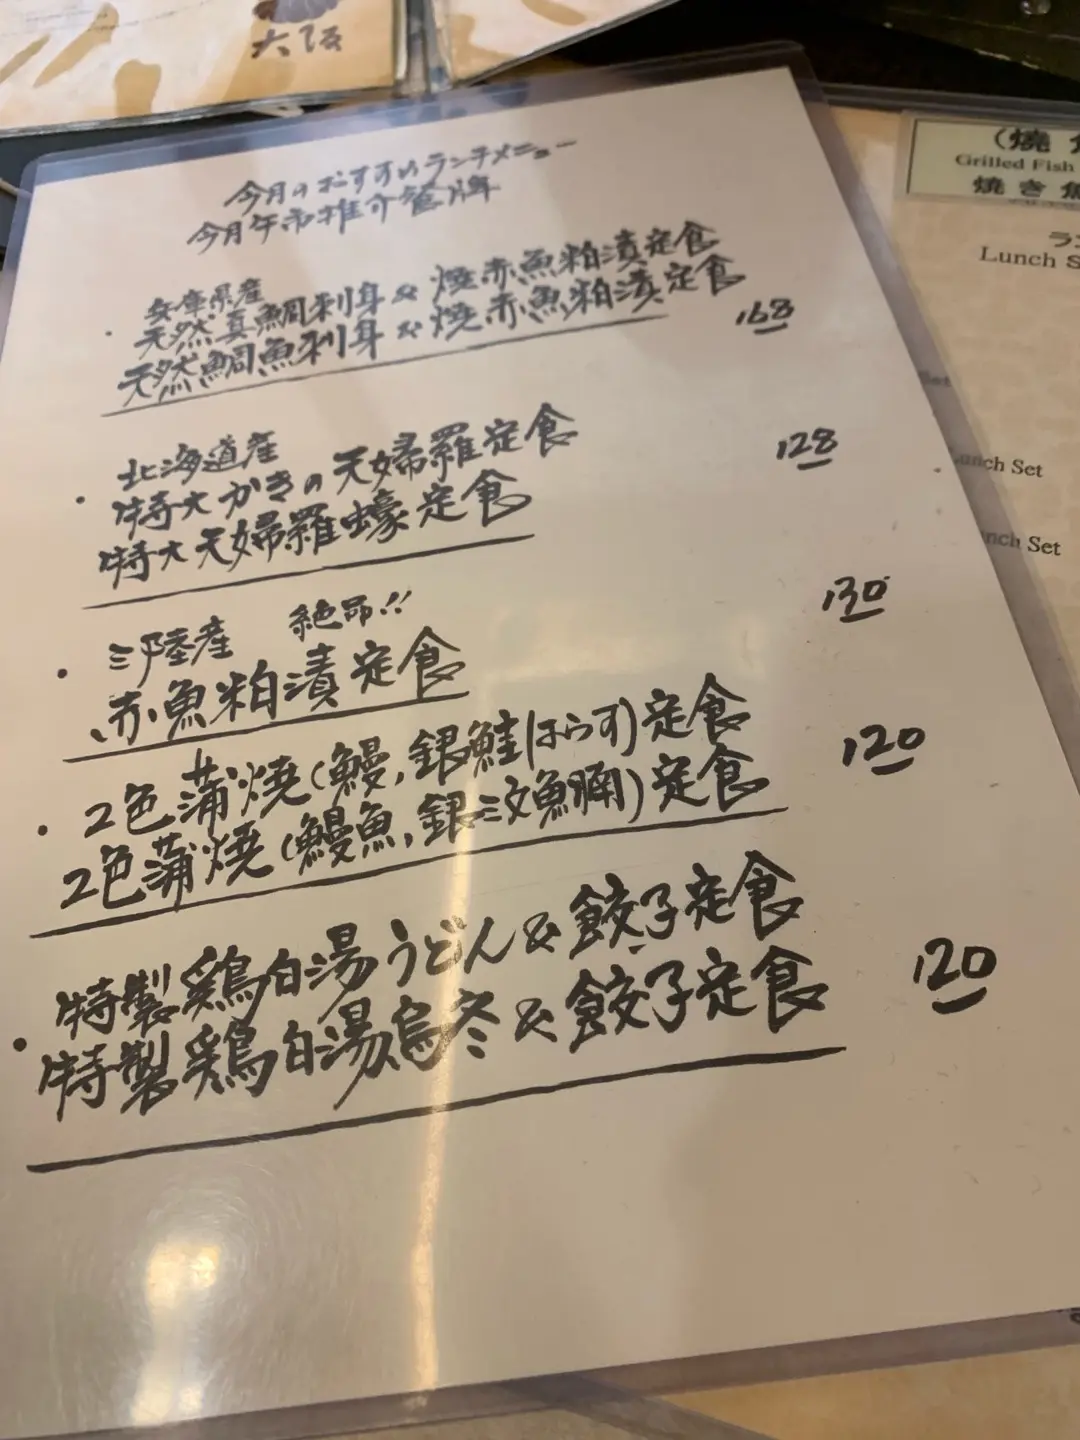 大阪
(燒
Grilled Fish
焼き魚
Lunch S
今月のおすすめランチメニュー
今月午市推介餐牌
・兵庫県産
天然真鯛刺身&焼赤魚粕漬定食
天然鯛魚刺身&燒赤魚粕漬定食
168
・北海道産
特大かきの天婦羅定食
特大天婦羅蠔定食
128
・三陸産 絶品!!
赤魚粕漬定食
130
・2色蒲焼(鰻,銀鮭はらす)定食
2色蒲燒(鰻魚,銀三文魚腩)定食
120
・特製鶏白湯うどん&餃子定食
特製鶏白湯烏冬&餃子定食
120
Set
unch Set
nch Set